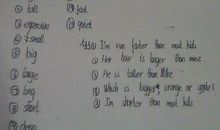 ① tall
③ expensive
④ small
⑤ big
⑥ large
⑦ long
⑧ short
⑨ cheap
fast
quiet
① I'm run faster than most kids
② Her hair is larger than mice
③ He is taller than Mike
④ Which is bigger orange or apple?
⑤ I'm shorter than most kids